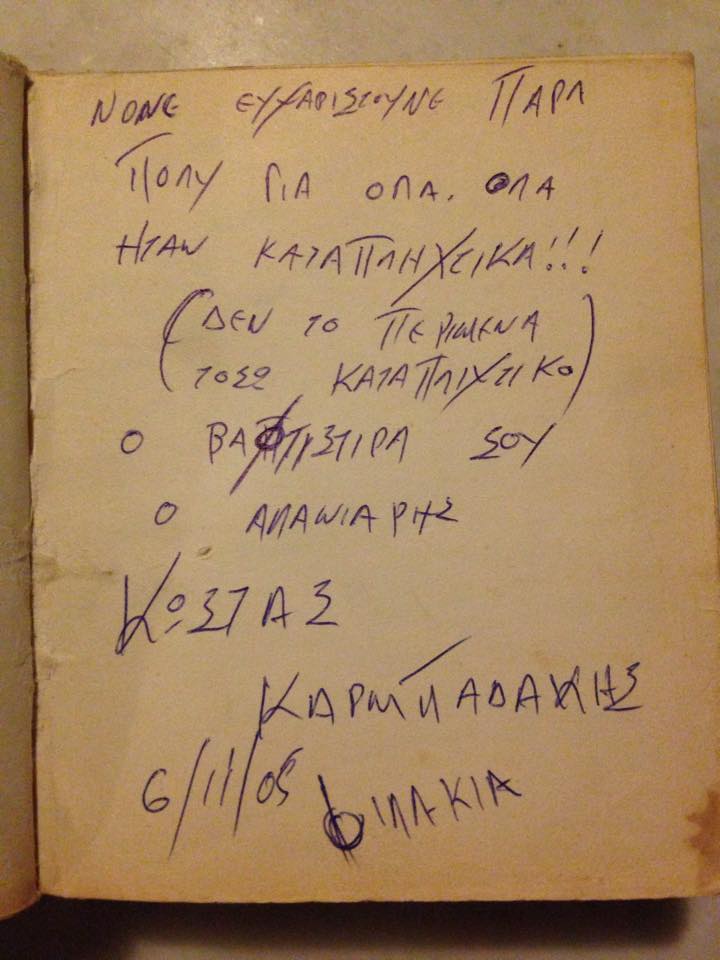 ΝΟΝΕ ΕΥΧΑΡΙΣΤΟΥΜΕ ΠΑΡΑ
ΠΟΛΥ ΓΙΑ ΟΛΑ. ΟΛΑ
ΗΤΑΝ ΚΑΤΑΠΛΗΧΤΙΚΑ!!!
(ΔΕΝ ΤΟ ΠΕΡΙΜΕΝΑ
ΤΟΣΩ ΚΑΤΑΠΛΙΧΤΙΚΟ)
Ο ΒΑΦΤΙΣΤΙΡΑ ΣΟΥ
Ο
ΚΩΣΤΑΣ
ΚΑΡΜΠΑΔΑΚΗΣ
6/11/05 ΦΙΛΑΚΙΑ